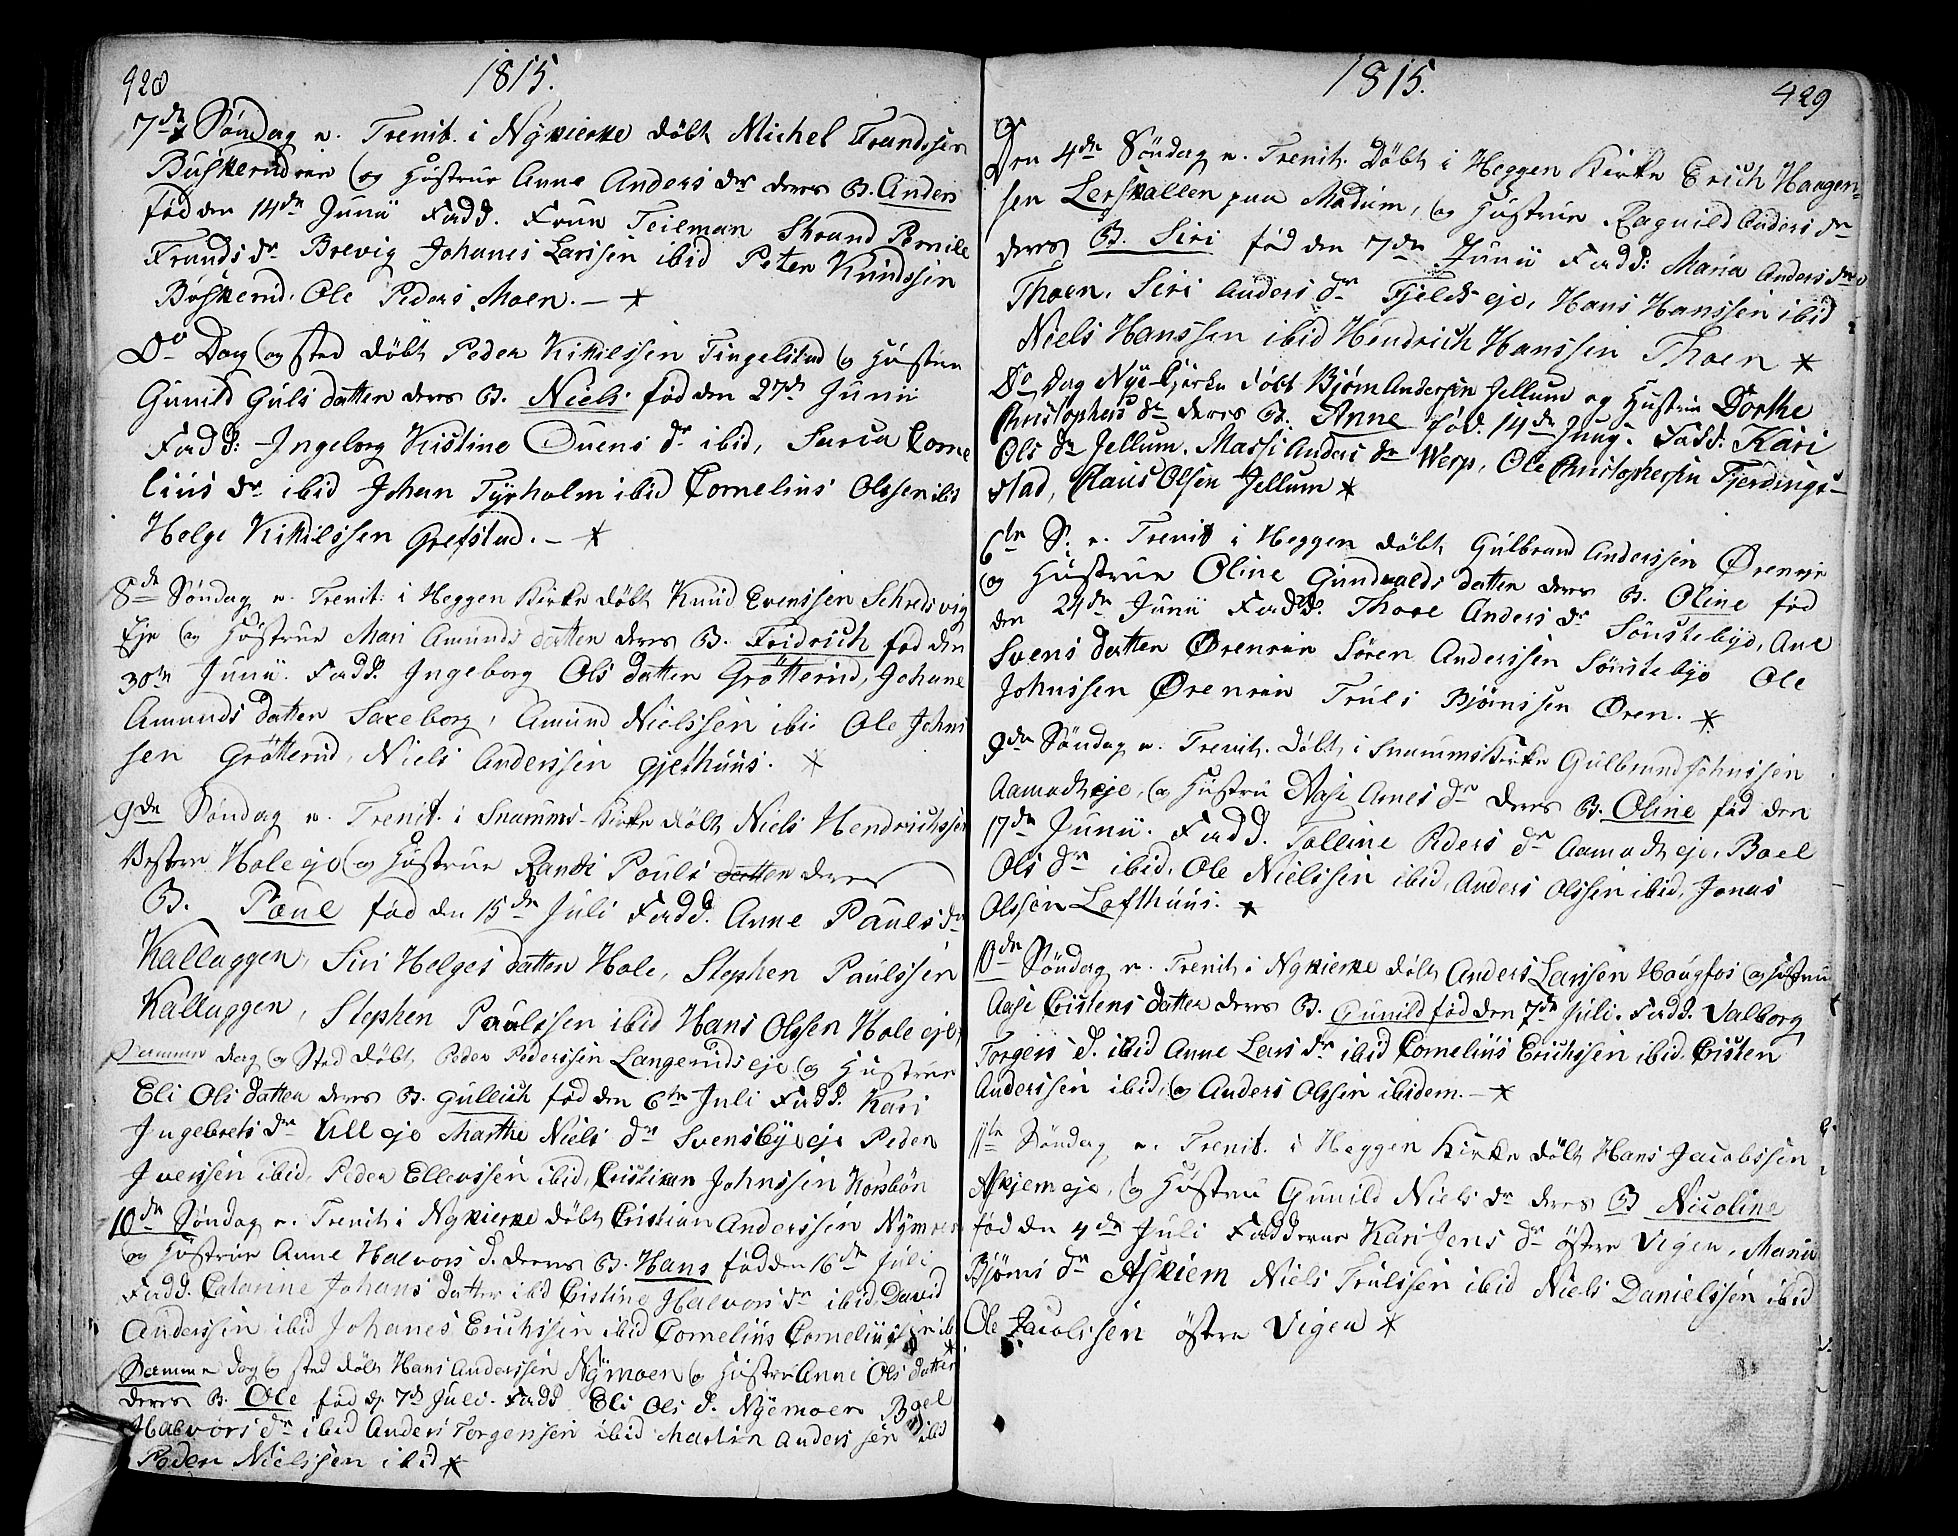 928
1815.
7de Søndag n. Trenit. i Nykierke döbt Michel Frandssen
Buskerudeie og Hustrue Anne Anders dr deres B. Anders
fød den 14de Junii Fadd. Frue Teilman Skrand Pernile
Frands dr Brevig Johanes Larssen ibid Peter Knudssen
Buskerud. Ole Peders Moen. – *
Do Dag og sted döbt Peder Kittilssen Tingelstad og Hustrue
Gunild Guls datter deres B. Niels fød den 27de Junii
Fadd: Ingeborg Kistine Ouens dr ibid, Sarva Corne
lius dr ibid Johan Tyrholm ibid Cornelius Olssen ibid
Helge Kittilssen Grefstad. – *
8de Søndag n. Trenit: i Heggen Kirke döbt Knud Evenssen Schredsvig
Eje og Hustrue Mari Amunds datter deres B. Fridrich fød den
30te Junii. Fadd. Ingeborg Ols datter Gröterud, Johane
Amunds datter Saxeborg, Amund Nielssen ibi Ole Johns
sen Gröterud, Niels Anderssen Gjethuus. *
9de Søndag n. Trenit. i Snarums Kirke döbt Niels Hendrichssen
Vestre Hole eje og Hustrue Randi Pouls datter deres
B. Poul fød den 15de Juli Fadd. Anne Pauls dr
Kallaggen, Siri Helges datter Hole, Stephen Paulssen
Kallaggen, Stephen Paulssen ibid Hans Olssen Hole eje
Samme dag og Sted döbt Peder Pederssen Langeruds eje og Hustrue
Eli Ols datter deres B. Gullich fød den 6te Juli Fadd. Kari
Ingebrets dr Ull eje Marthe Niels dr Svensbye eje Peder
Iverssen ibid, Peder Ellevssen ibid, Cristian Johnssen Korsbön
10de Søndag n. Trenit: i Nykierke döbt Cristian Anderssen Nymoen
og Hustrue Anne Halvors d. deres B. Hans fød den 16de Juli
Fadd. Catarine Johans datter ibd Cistine Halvors dr ibid David
Anderssen ibid Johanes Erichssen ibid Cornelius Corneliussen ib *
Samme dag og sted döbt Hans Anderssen Nymoen og Hustrue Anne Ols datter
deres B. Ole fød d. 7de Juli. Fadd Eli Ols d. Nyemoen Boel
Halvors dr ibid Anders Torgersen ibid Martin Anderssen ibid
Peder Nielssen ibid *
1815.
429
Den 4de Söndag n. Trenit. Döbt i Heggen Kirke Erich Haagen-
sen Lerskallen paa Modum, og Hustrue Ragnild Anders dr
deres B. Siri fød den 7de Junii Fadd: Maria Anders dr
Thoen, Siri Anders dr Fjelds eje, Hans Hanssen ibid
Niels Hanssen ibid Hendrich Hanssen Thoen *
Do Dag Nye-Kjerke döbt Bjørn Andersen Jellum og Hustrue Dorthe
Christophers dr deres B. Anne fød. 14de Junij. Fadd: Kari
Ols dr Jellum. Massi Anders dr Werp, Ole Christophersen Fjerdings-
stad, Claus Olsen Jellum *
6te S. n. Trenit i Heggen döbt Gulbrand Anderssen Øreneje
og Hustrue Oline Gundvalds datter deres B. Oline fød
den 24de Junii Fadd. Thore Anders dr Sönstebye, Ane
Svens datter Øreneie Sören Anderssen Sönstebye Ole
Johnssen Øreneie Truls Bjørnssen Øren. *
9de Søndag n. Trenit. döbt i Snarums Kirke Gulbrand Johnssen
Aamodt eje, og Hustru Aase Arnes dr deres B. Oline fød den
17de Junii. Fadd. Tolline Peders dr Aamodt eje, Boel
Ols dr ibid. Ole Nielssen ibid, Anders Olssen ibid, Jonas
Olssøn Lofthuus. *
10de Søndag n. Trenit i Nykierke döbt Anders Larssen Hougfos og Hustru
Aase Cistens datter deres B. Gunild fød den 7de Juli. Fadd. Valborg
Torgers d. ibid Anne Lars dr ibid Cornelius Erichssen ibid. Cristen
Anderssen ibid, og Anders Olssen ibidem. – *
11te Søndag n. Trenit. i Heggen Kirke döbt Hans Jacobssen
Askjem eje, og Hustru Gunild Niels dr deres B Nicoline
fød den 4de Juli Fadderne Kari Jens dr østre Vigen, Maria
Bjørns dr Askiem Niels Trulssen ibid Niels Danielssen ibid
Ole Jacobssen østre Vigen *